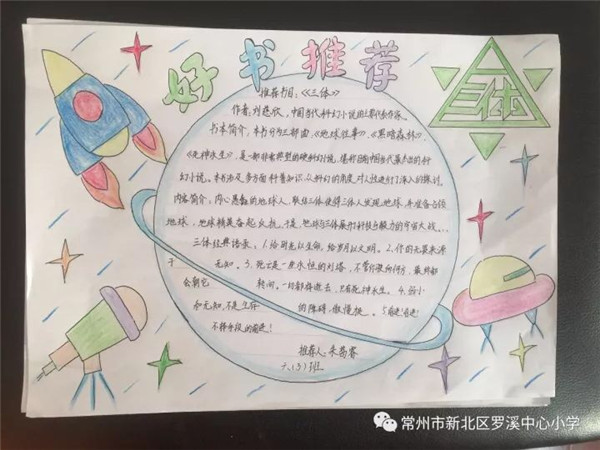 好书推荐
三体
推荐书目：《三体》
作者：刘慈欣，中国当代科幻小说的主要代表作家。
书本简介：本书分为三部曲，《地球往事》，《黑暗森林》，
《死神永生》，是一部非常典型的硬科幻小说，堪称目前中国当代最杰出的科
幻小说。本书涉及多方面科普知识，以科幻的角度对人性进行了深入的探讨。
内容简介：内心愚蠢的地球人，联结三体使得三体人发现地球，并准备占领
地球，地球精英奋起反抗。于是，地球与三体展开科技与毅力的宇宙大战。...
三体经典语录：1.给时光以生命，给岁月以文明。2.你的无畏来源
于无知。3.死亡是一座永恒的灯塔，不管你驶向何方，最终都
会朝它转向。一切都将逝去，只有死神永生。4.弱小
和无知，不是生存的障碍，傲慢是。5.前进！前进！
不择手段的前进！
推荐人：朱蒟睿
六（3）班
常州市新北区罗溪中心小学